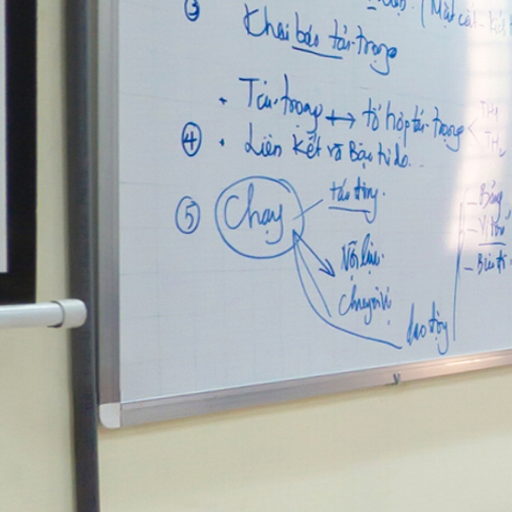 ③ (Mặt cắt
Khai báo tải trọng
. Tải trọng ↔ tổ hợp tải trọng < TH1
TH2
④ . Liên kết và Bậc tự do.
⑤ Chạy
tác động.
Nội lực.
chuyển vị
dao động
- Bảng
- Vị trí
- Biểu